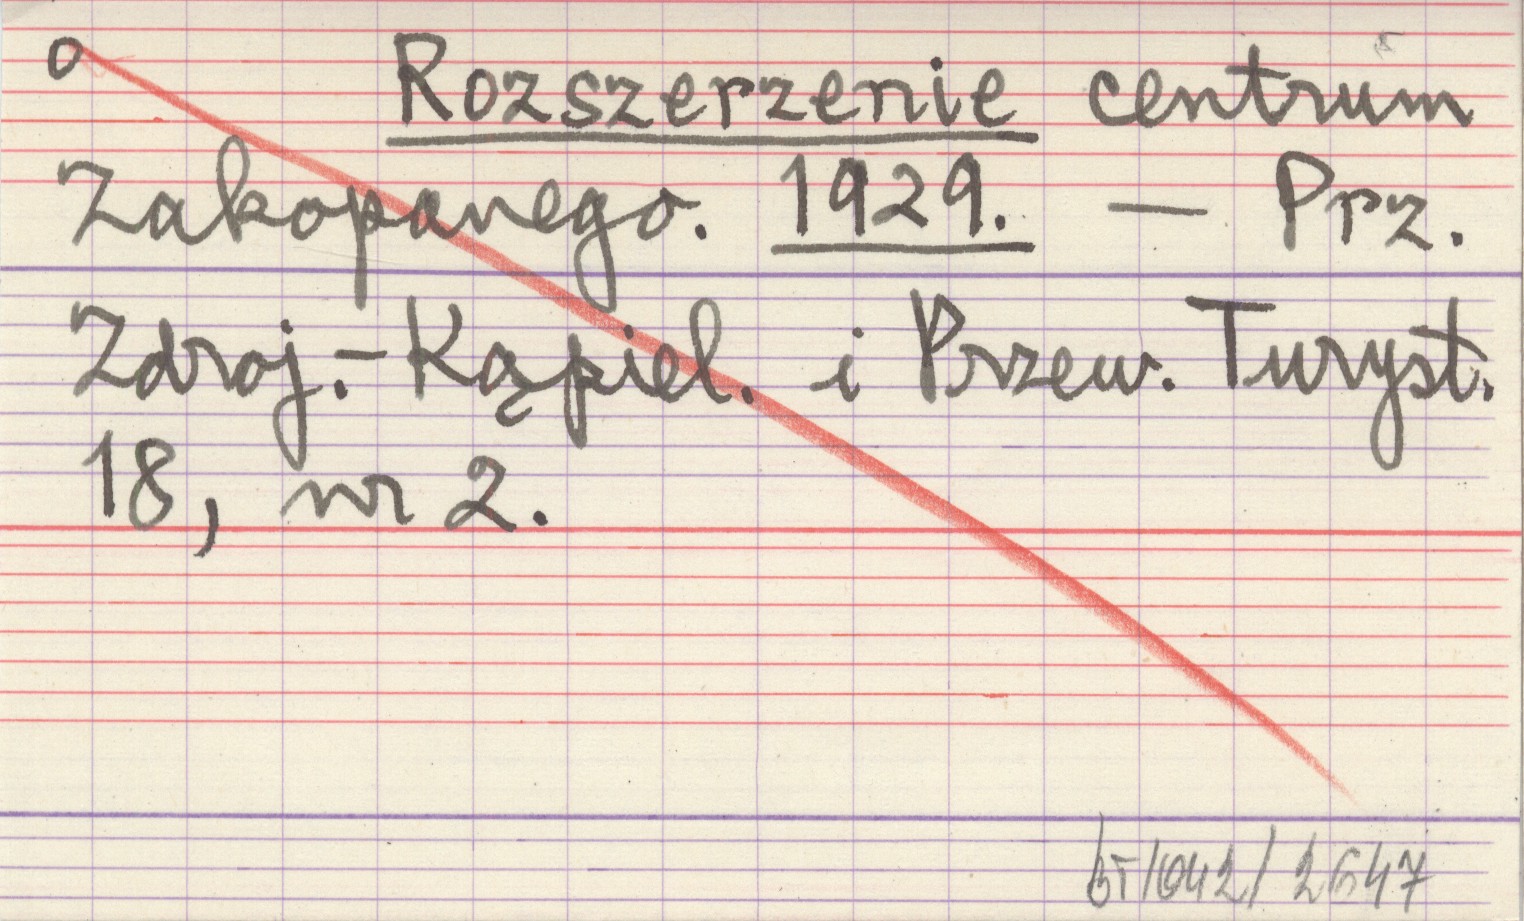 o Rozszerzenie centrum
Zakopanego. 1929. — Prz.
Zdroj.-Kąpiel. i Przew. Turyst.
18, nr 2.
BT/1042/2647